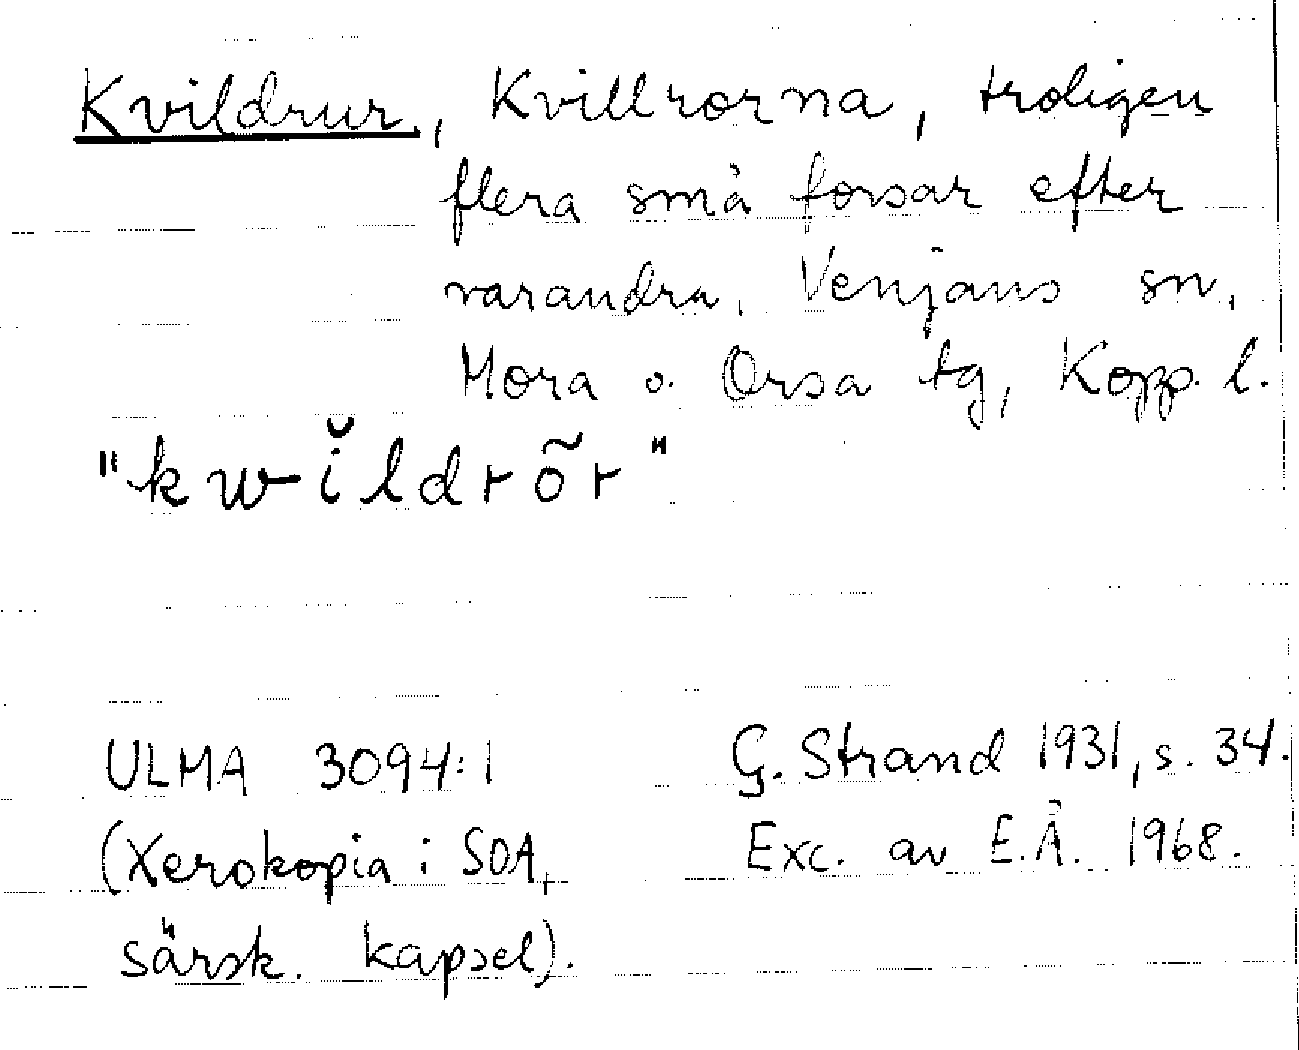 Kvildrur, Kvillrorna, troligen
flera små forsar efter
varandra, Venjans sn,
Mora o. Orsa tg, Kopp. l.
"kwĭldrõr"
ULMA 3094:1 G. Strand 1931, s. 34.
(Xerokopia i SOA, Exc. av E.Å. 1968.
särsk. kapsel).